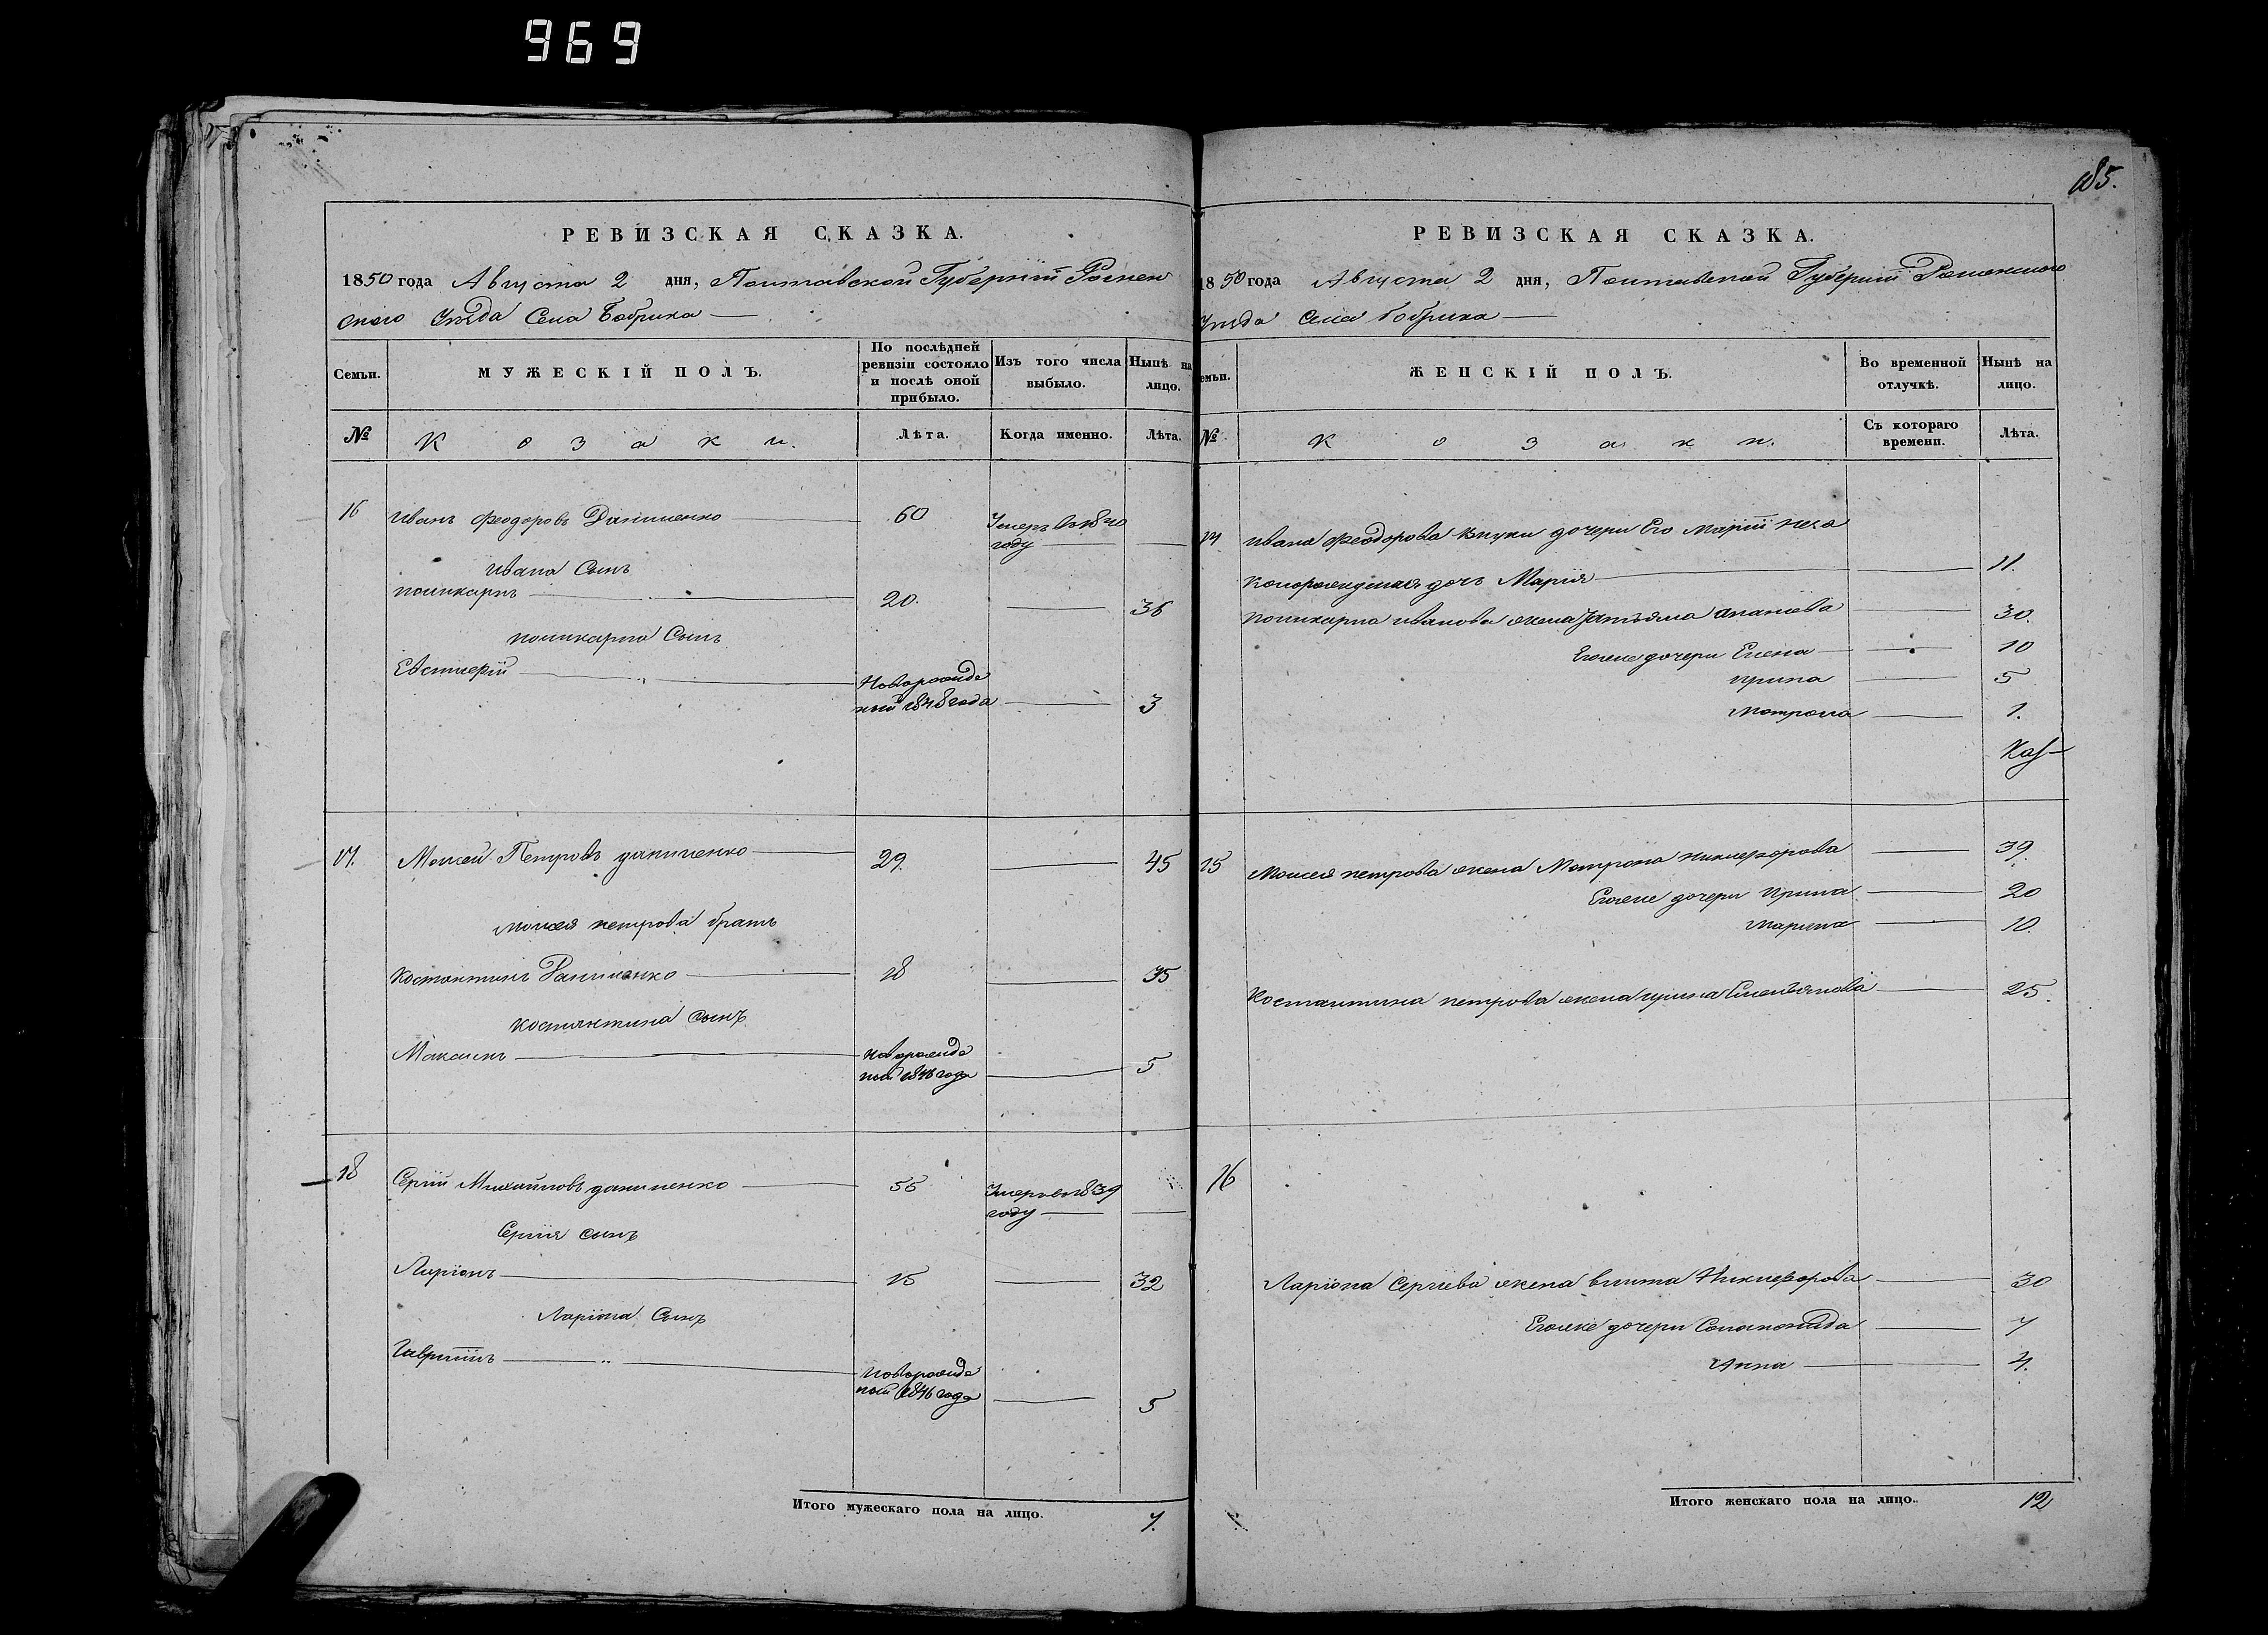 969
185.
РЕВИЗСКАЯ СКАЗКА.
1850 года Августа 2 дня, Полтавской Губерніи Ромен
скаго Уѣзда Села Бобрика
Семьи.
МУЖЕСКІЙ ПОЛЪ.
По послѣдней ревизіи состояло и послѣ оной прибыло.
Изъ того числа выбыло.
Нынѣ на лицо.
№
Козаки.
Лѣта.
Когда именно.
Лѣта.
16 Иванъ Феодоровъ Даниленко 60 Умеръ въ 1840
году
Ивана Сынъ
Поликарпъ 20. 36
Поликарпа Сынъ
Евстафій Новорожде
ный 1848 года 3
17. Моисей Петровъ Даниленко 29. 45
Моисея Петрова братъ
Костантинъ Даниленко 18 35
Костянтина сынъ
Максимъ Новорожде
ный 1846 года 5
18 Сергій Михайловъ Даниленко 55 Умеръ въ 1839
году
Сергія сынъ
Ларіонъ 15 32
Ларіона Сынъ
Гавріилъ Новорожде
ный 1846 года 5
Итого мужескаго пола на лицо. 7.
РЕВИЗСКАЯ СКАЗКА.
1850 года Августа 2 дня, Полтавской Губерніи Роменскаго
Уѣзда Села Бобрика
емьи.
ЖЕНСКІЙ ПОЛЪ.
Во временной отлучкѣ.
Нынѣ на лицо.
№
Козаки.
Съ котораго времени.
Лѣта.
14 Ивана Феодорова внуки дочери Его Маріи неза
конорожденная дочь Марія 11.
Поликарпа Иванова жена Татьяна Ананіева 30.
Егоже дочери Елена 10
Ирина 5
Мотрона 1.
15 Моисея Петрова жена Мотрона Никифорова 39.
Егоже дочери Ирина 20
Марина 10.
Костантина Петрова жена Ирина Емельянова 25.
16
Ларіона Сергіева жена Улита Никифорова 30
Егоже дочери Соломонида 7
Анна 4.
Итого женскаго пола на лицо. 12